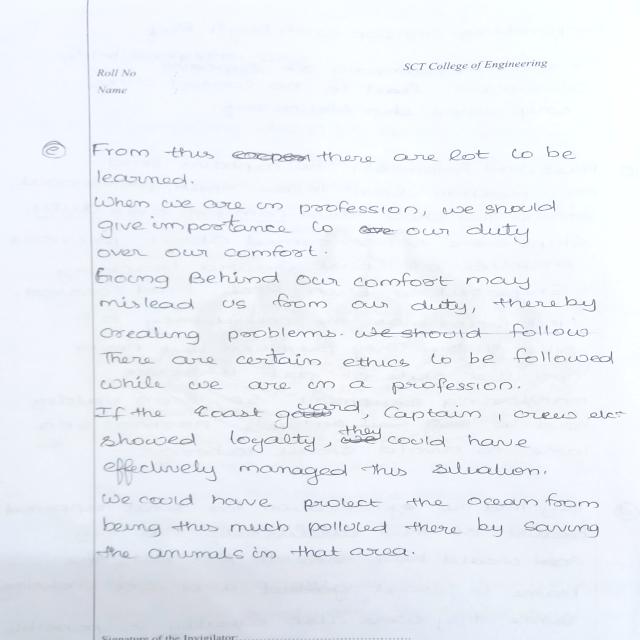 SCT College of Engineering
Roll No :
Name :
e From this there are lot to be
learned.
When we are in profession, we should
give importance to our duty
over our comfort.
Going Behind our comfort may
mislead us from our duty, thereby
creating problems. we should follow
There are certain ethics to be followed
while we are in a profession.
If the Coast guard, Captain, crews etc
showed loyalty, they could have
effectively managed this situation.
We could have protect the ocean from
being this much polluted there by saving
the animals in that area.
Signature of the Invigilator: